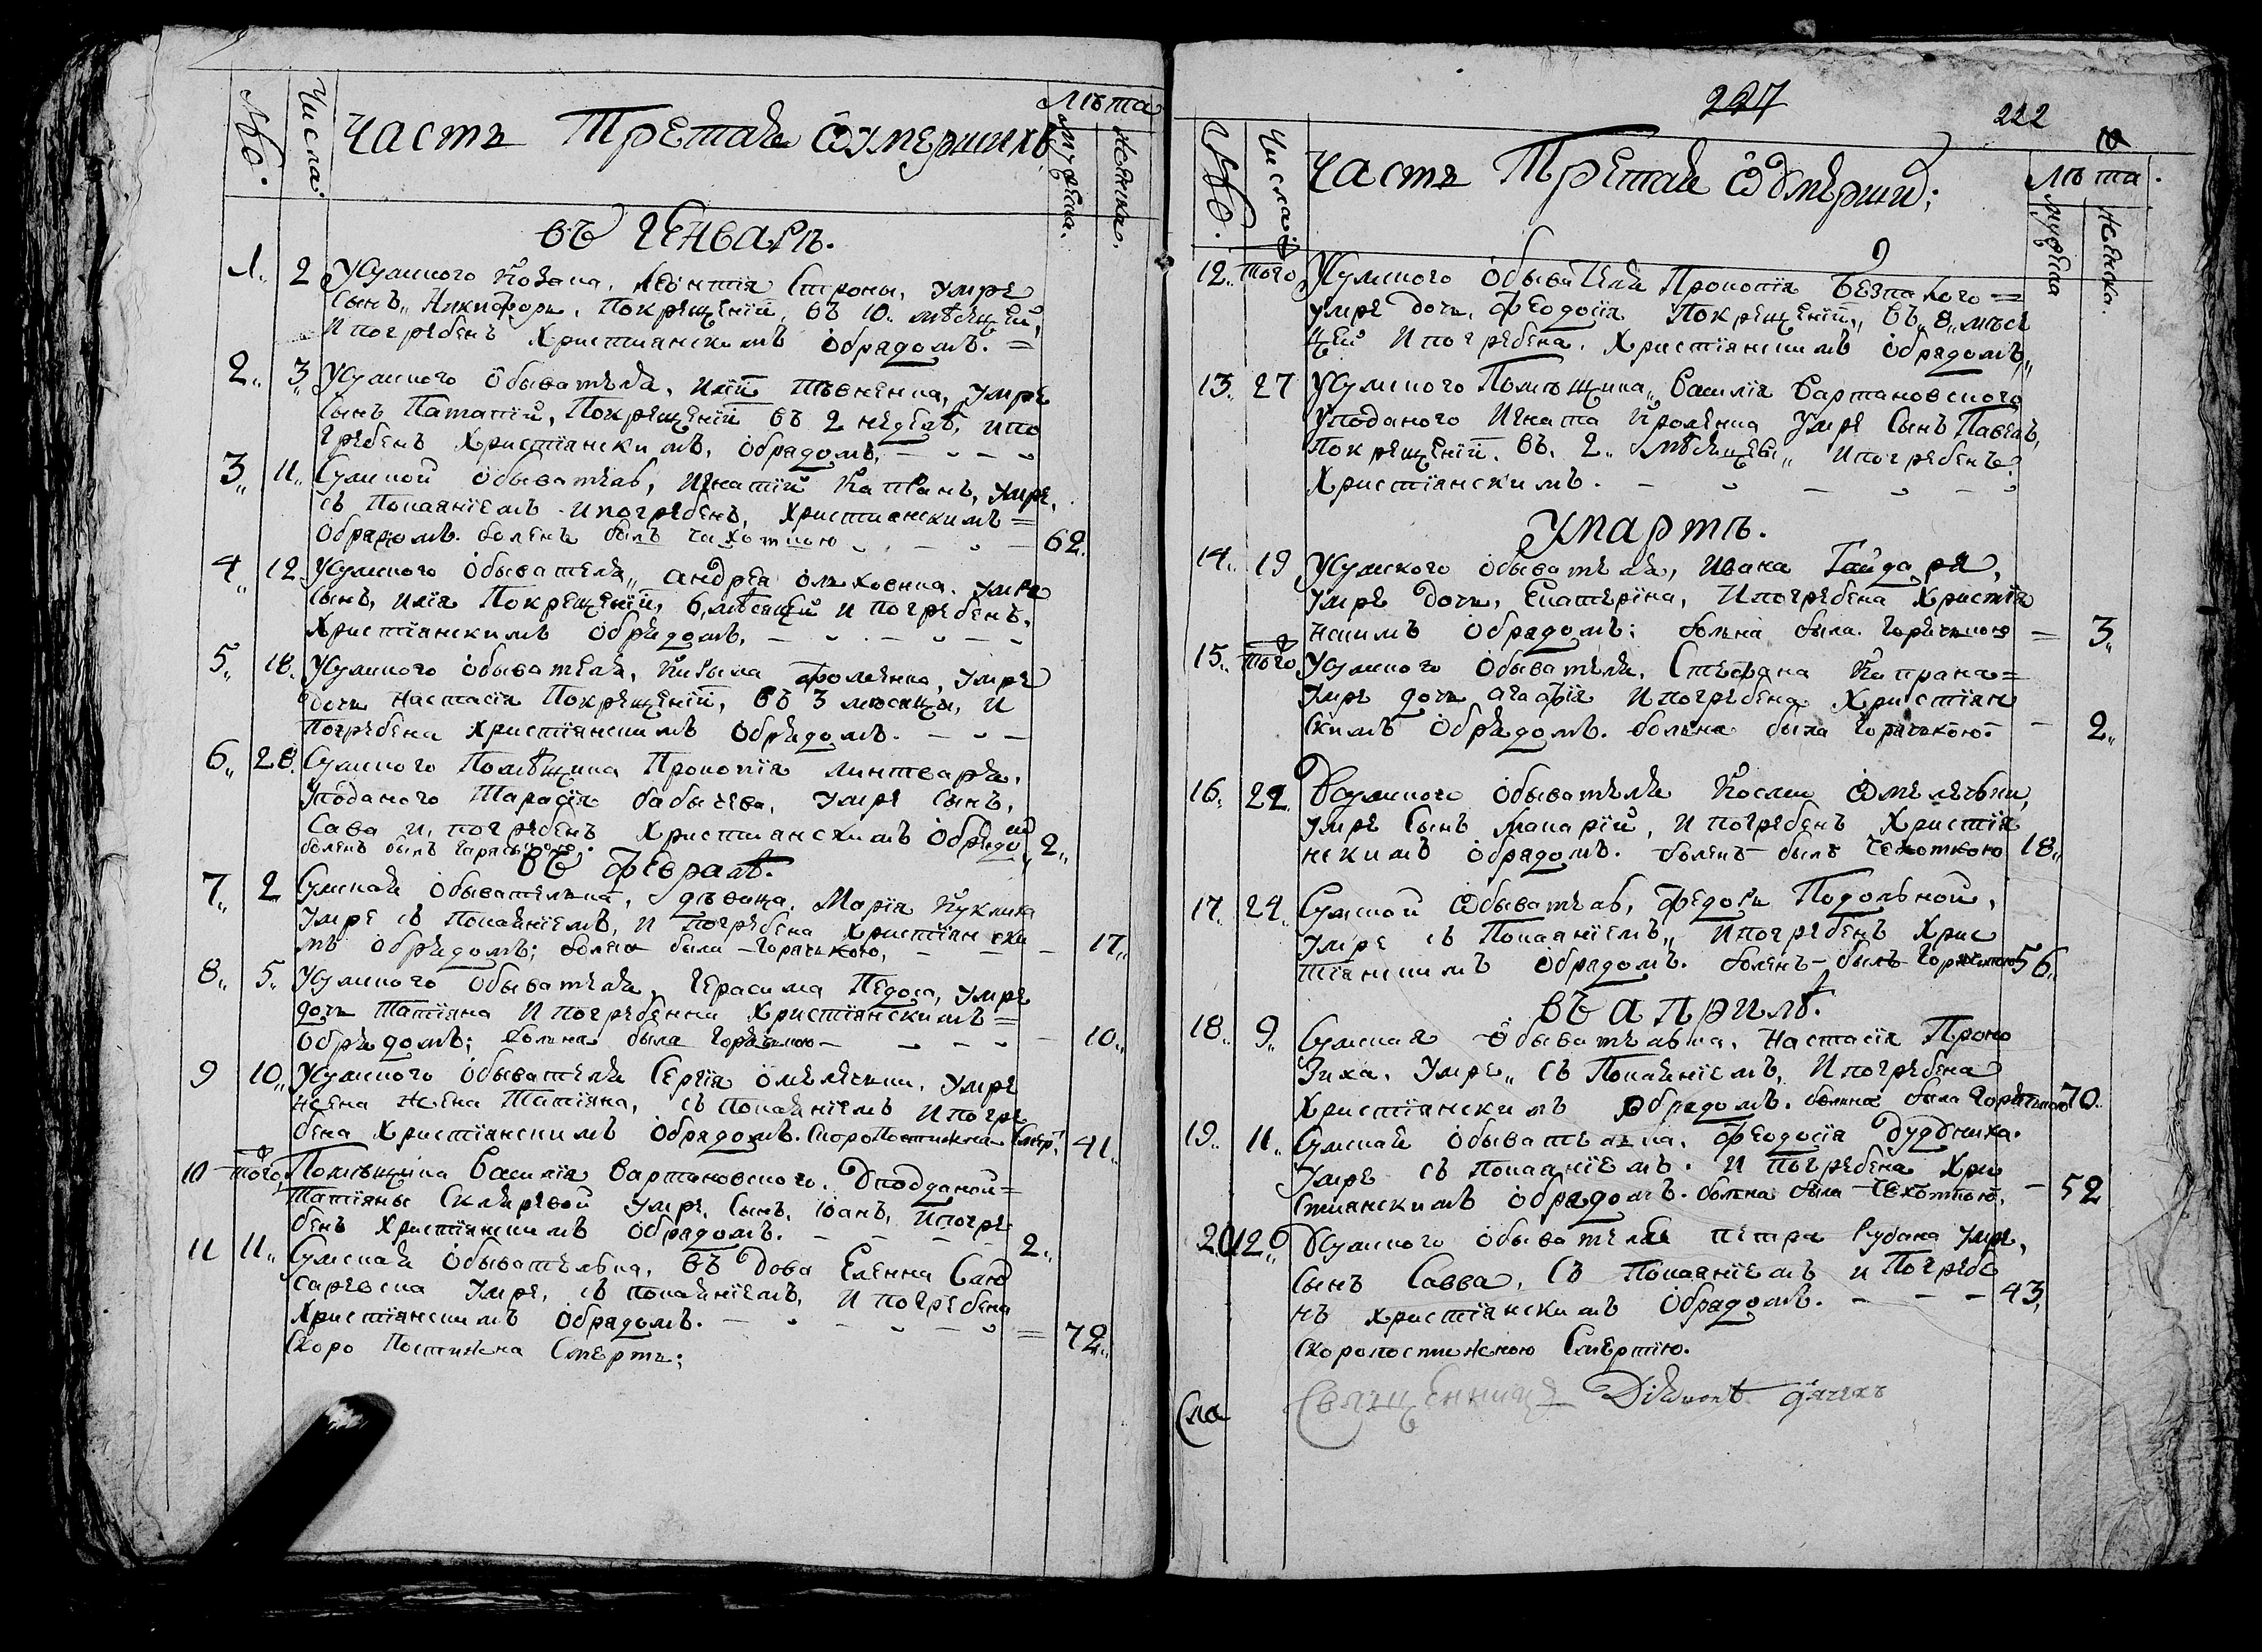 Лѣта
№о. Числа. Часть Третая Ѡумершихъ мужеска. женска.
въ Генварѣ.
1. 2 Усумского Козака, Леонтія Строны, умре
Сынъ, Никифоръ, Покрещеніи, въ 10. мѣсяцей,
И погребенъ Христианскимъ Обрадомъ. =
2. 3 Усумского Обывателя, Иліи умре
Сынъ Патапій, Покрещеніи въ 2 недели, ипо
гребенъ Христіанскимъ, Обрадомъ,
3. 11. Сумской Обыватель, Игнатій Каптанъ, умре,
съ Покаяніемъ Ипогребенъ, Христианскимъ =
Обрадомъ. боленъ былъ чахоткою 62.
4. 12 Усумского Обывателя, Андрея умре
Сынъ, Илія Покрещеніи, 6, мѣсацей И погребенъ.
Христіанскимъ Обрядомъ,
5. 18. Усумского Обывателя, умре
дочь Настасія Покрещеніи, въ 3 месяцы, И
Погребена Христіанскимъ Обрядомъ.
6. 28. Сумского Помѣщика Прокопія Линтваря,
Уподаного Тарасія бабычева, умре Сынъ,
Сава И, погребенъ Христианскимъ Обрядо 2.
боленъ былъ
въ Февралѣ.
7. 2 Сумская Обывателька, дѣвица, Марія Куклина
Умре съ Покаяніемъ, И Погребена Христіянски
мъ Обрядомъ; болна была Горячкою, 17.
8. 5. Усумского Обывателя, Герасима Педоса, умре
дочь Татіяна И погребенна Христіянскимъ =
Обрядомъ; болна была Горячкою 10.
9 10. Усумского Обывателя Сергія Умре
жена Жена Татіяна, съ Покаяніемъ И погре
бена Христіянскимъ Обрядомъ. Скоро Постижна Смер. 41.
10 того Помѣщика Василія Вартановского. Уподданой =
Татіяны Скляревой Умре, Сынъ, Іоанъ, Ипогре
бенъ Христіянскимъ Обрядомъ. 2.
11 11. Сумская Обывателька, въ Дова Еленна
Умре, съ покаяніемъ, И погребена
Христіянскимъ Обрадомъ. = 72.
Скоро Постижна Смерть;
227 222
№о. Числа Часть Третая Ѡ Умерши; Лѣта. мужеска женска.
12. того Усумского Обывателя Прокопія Безпалого =
умре Дочь, Феодосія Покрещеніи, въ, 8, мѣся
цей И погребена. Христіянскимъ Обрядомъ,
13. 27 Усумского Помѣщика, Василія Вартановского
Уподаного Игната умре Сынъ Павелъ,
Покрещеніи, въ, 2. мѣсяцевъ, Ипогребенъ
Христіянскимъ.
Умартѣ.
14. 19 Усумского Обывателя, Ивана Гайдаря,
Умре Дочь, Екатеріна, И погребена Христія
нскимъ Обрадомъ; больна была. Горячкою = 3.
15. того Усумского Обывателя, Стефана
Умре дочь Агафія И погребена Христіян
скимъ Обрядомъ. больна была Горячкою. 2.
16. 22. Усумского Обывателя Косми
умре Сынъ Макарій, И погребенъ Христія
нскимъ Обрядомъ. боленъ былъ Чахоткою 18.
17. 24. Сумской Обыватель, Федоръ Подольной,
Умре съ Покаяніемъ, И погребенъ Хрис
тіянскимъ Обрадомъ. боленъ былъ Горячкою 56.
въ Априлѣ.
18. 9. Сумская Обывателька, Настасія Проко
Умре, съ Покаяніемъ, И погребена
Христіянскимъ Обрядомъ. больна была Горячкою 70.
19. 11. Сумская Обывателька, Феодосія
Умре съ Покаяніемъ. И Погребена Хри
стианскимъ Обрядомъ. больна была Чахоткою, 52
20. 12. Усумского Обывателя Петра умре,
Сынъ Савва, Съ Покаяніемъ и Погребе
нъ Христіянскимъ Обрадомъ. 43.
Скоропостижною Смертію.
Священникъ